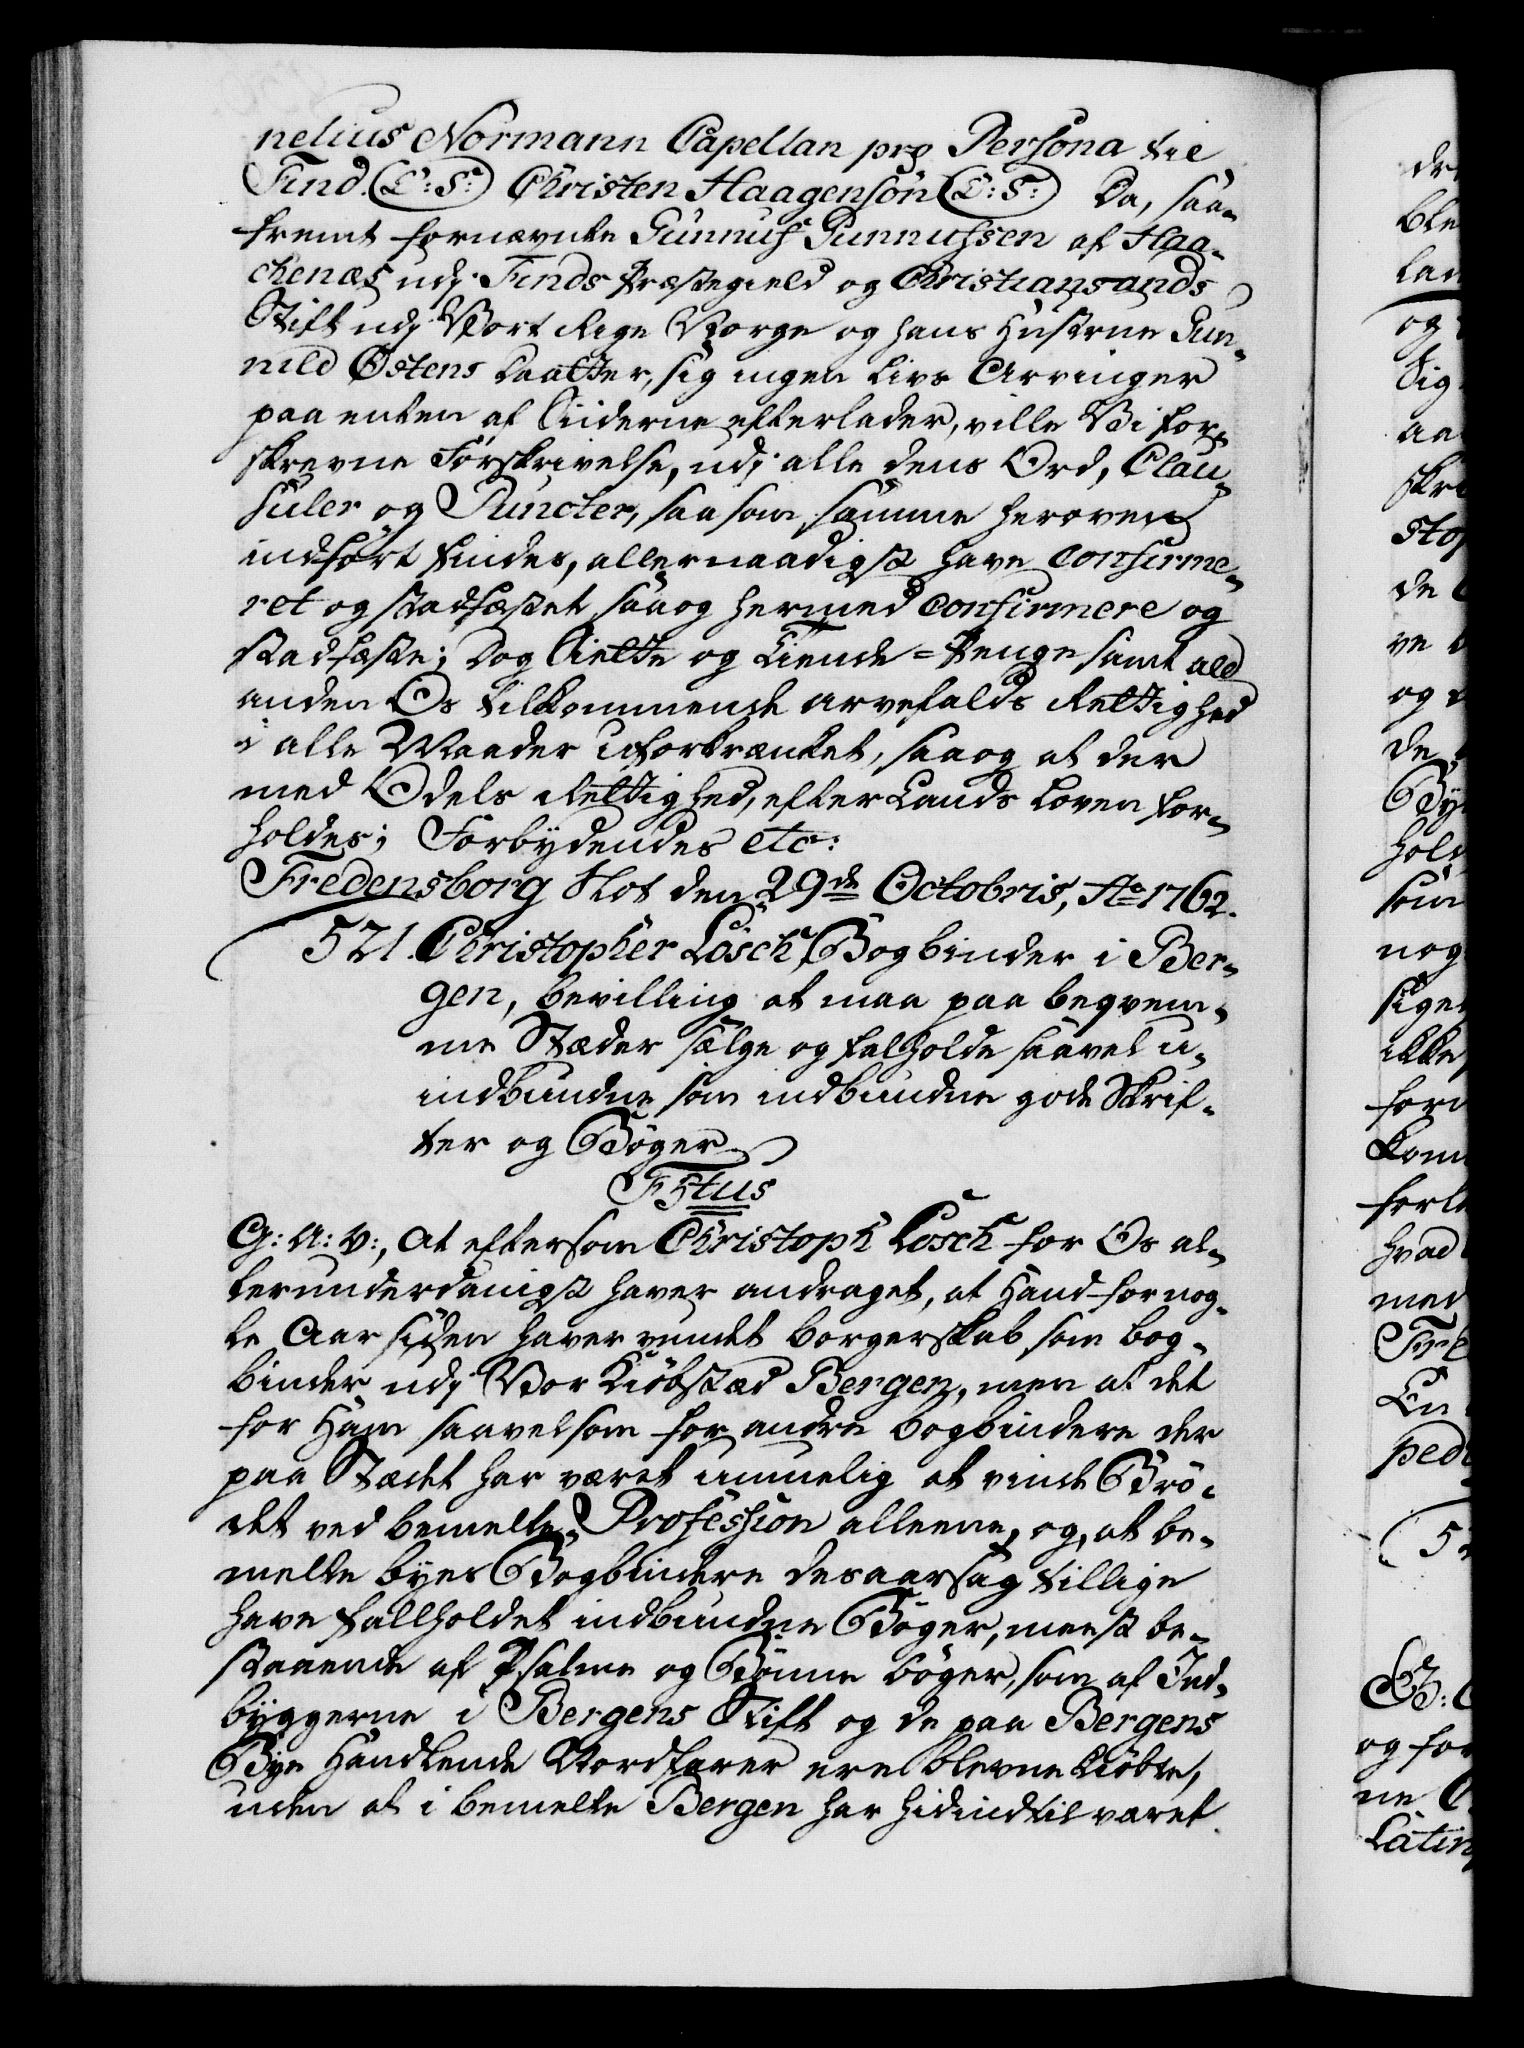 nelius Normann Capellan pro Persona til
Find. (L:S:) Christen Haagensøn (L:S:) Da, saa-
fremt fornævnte Gunnuf Gunnufsen af Haa-
chenæs udj Finds Præstegield og Christiansands
Stift udj Vort Rige Norge og hans Hustrue Gun-
nild Østens Daatter, sig ingen Livs Arvinger
paa enten af Siiderne efterlader, ville Vi for-
skrevne Forskrivelse, udj alle dens Ord, Clau-
suler og Puncter, saa som samme heroven
indført findes, allernaadigst have confirme-
ret og stadfæstet saa og hermed confirmere og
stadfæste; Dog Siette og Tiende-Penge samt ald
anden Os tilkommende arvefalds Rettighed
i alle Maader uforkrænket, saa og at der
med Odels Rettighed, efter Lands Loven for-
holdes; Forbydendes etc:
Fredensborg Slot den 29de Octobris, Ao 1762.
521. Christopher Lösch, Bogbinder i Ber-
gen, bevilling at maa paa beqvem-
me Stæder sælge og falholde saavel u-
indbundne som indbundne gode Skrif-
ter og Bøger
F5tus
G: A: V:, At eftersom Christoph Losch for Os al-
lerunderdanigst haver andraget, at Hand for nog-
le Aar siden haver vundet borgerskab som bog-
binder udj Vor Kiøbstæd Bergen, men at det
for Ham saavelsom for andre bogbindere der
paa Stædet har været umuelig at vinde Brø-
det ved bemelte Profession alleene, og, at be-
melte byes Bogbindere desaarsag tillige
have fallholdet indbundne Bøger, meest be-
staaende af Psalme og Bønne bøger, som af Ind-
byggerne i Bergens Stift og de paa Bergens
Bye Handlende Nordfarer ere blevne kiøbte,
uden at i bemelte Bergen har hidindtil været